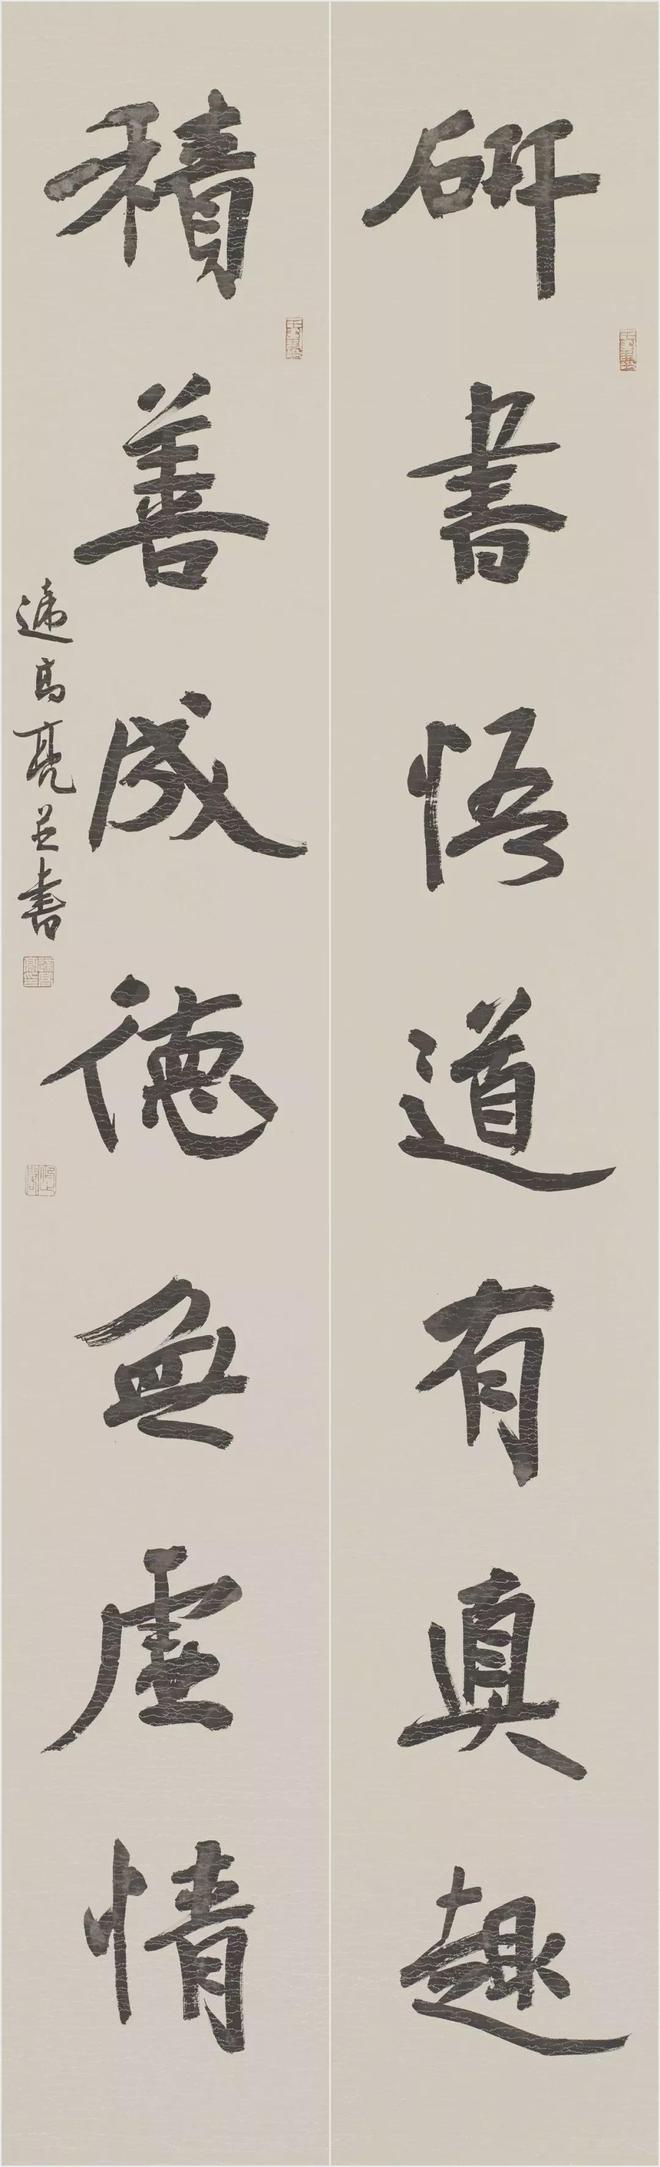 研書悟道有真趣
積善成德無虛情
遆高亮並書